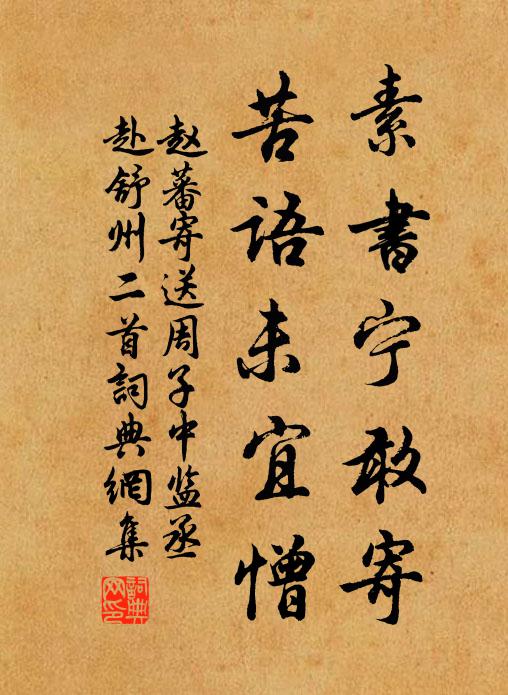 素書宁敢寄
苦語未宜憎
赵蕃寄送周子中监丞
赴舒州二首詞典網集
詞典網印